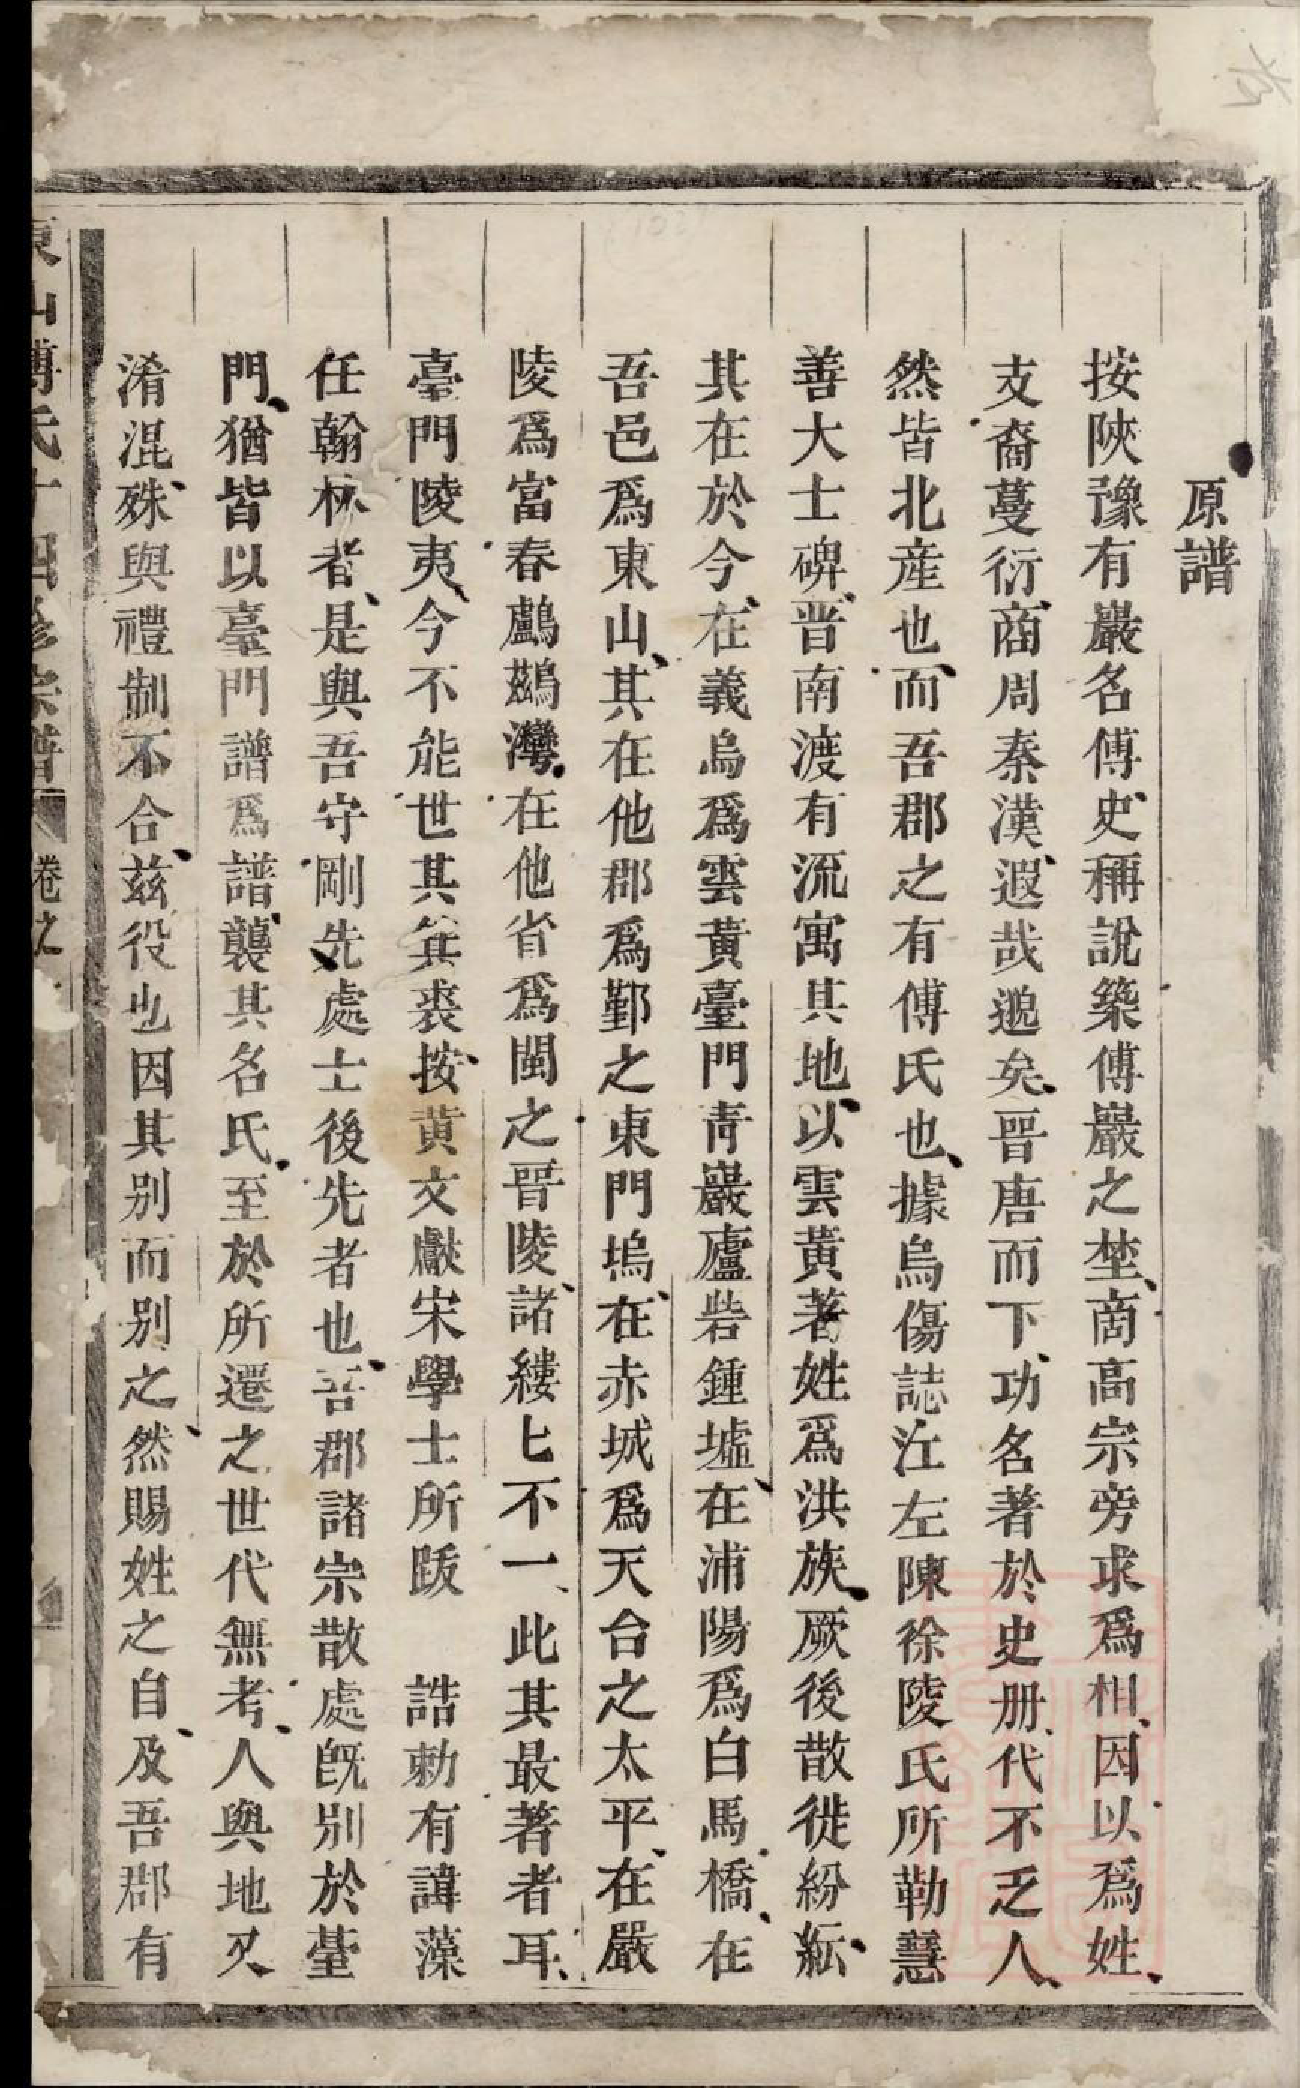 原譜
按陝豫有巖名傅史稱說築傅巖之埜商高宗旁求爲相因以爲姓
支裔蔓衍商周秦漢遐哉邈矣晉唐而下功名著於史册代不乏人
然皆北産也而吾郡之有傅氏也據烏傷誌江左陳徐陵氏所勒慧
善大士碑晋南渡有流寓其地以雲黃著姓爲洪族厥後散徙紛紜
其在於今在義烏爲雲黃臺門青巖廬砦鍾墟在浦陽爲白馬橋在
吾邑爲東山其在他郡爲鄞之東門塢在赤城爲天台之太平在嚴
陵爲富春鸕鷀灣在他省爲閩之晉陵諸縷匕不一此其最著者耳
臺門陵夷今不能世其箕裘按黄文獻宋學士所跋　誥勅有諱藻
任翰林者是與吾守剛先處士後先者也吾郡諸宗散處旣别於臺
門猶皆以臺門譜爲譜襲其名氏至於所遷之世代無考人與地又
淆混殊與禮制不合兹役也因其别而别之然賜姓之自及吾郡有
東山傅氏十四修宗譜 卷之